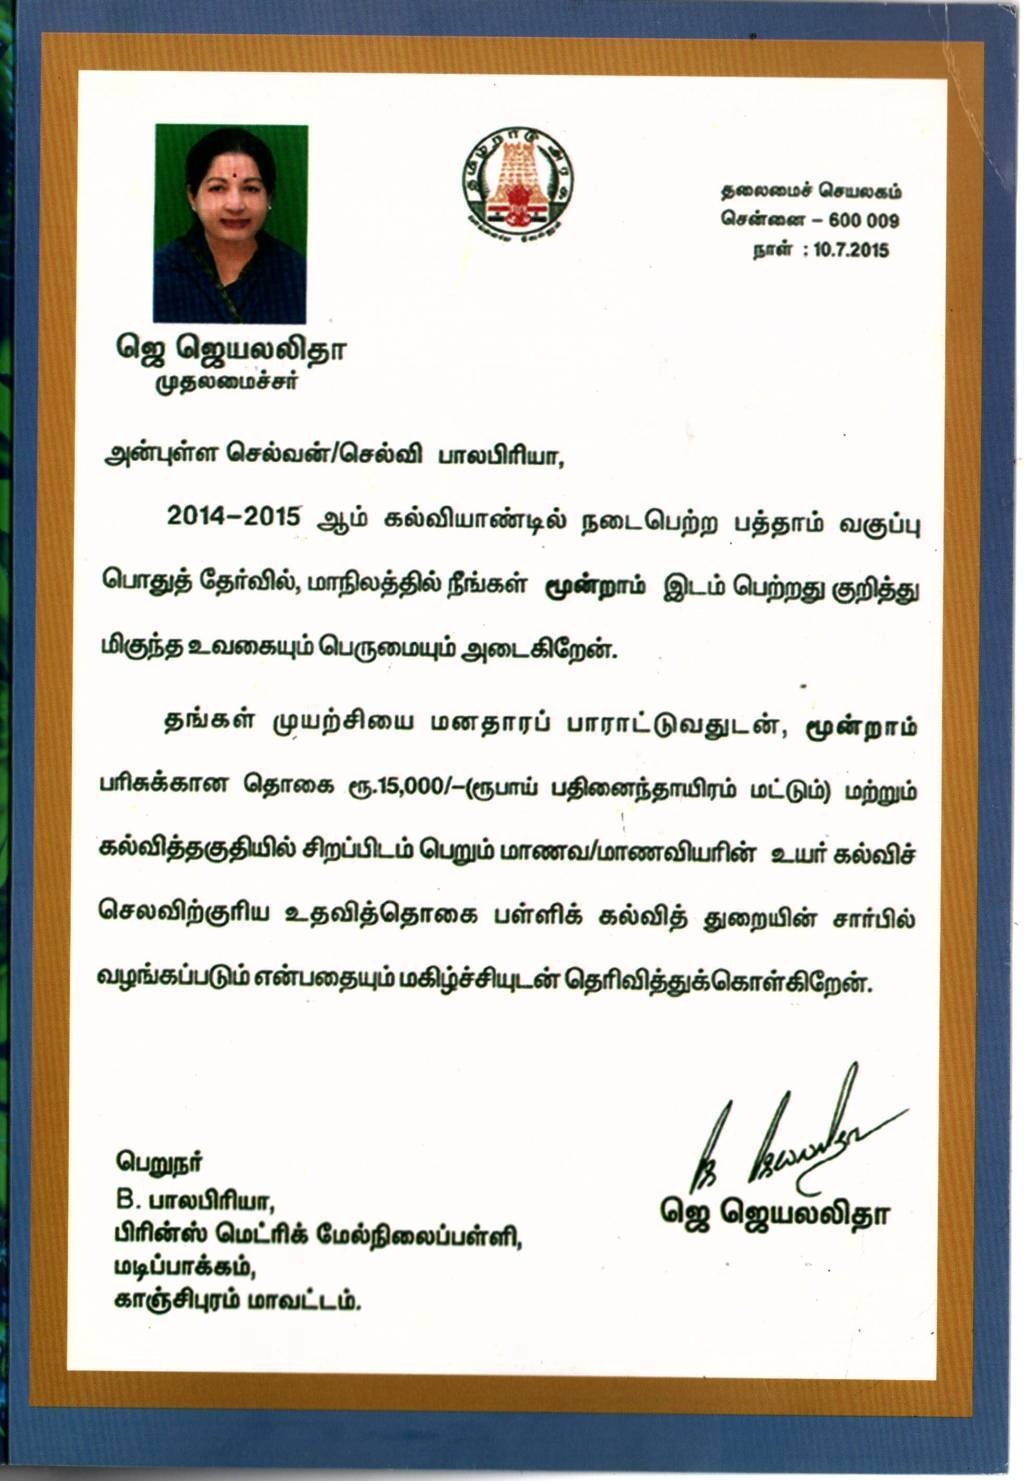 தமிழ்நாடு அரசு
வாய்மையே வெல்லும்
தலைமைச் செயலகம்
சென்னை – 600 009
நாள் : 10.7.2015
ஜெ ஜெயலலிதா
முதலமைச்சர்
அன்புள்ள செல்வன்/செல்வி பாலபிரியா,
2014–2015 ஆம் கல்வியாண்டில் நடைபெற்ற பத்தாம் வகுப்பு
பொதுத் தேர்வில், மாநிலத்தில் நீங்கள் மூன்றாம் இடம் பெற்றது குறித்து
மிகுந்த உவகையும் பெருமையும் அடைகிறேன்.
தங்கள் முயற்சியை மனதாரப் பாராட்டுவதுடன், மூன்றாம்
பரிசுக்கான தொகை ரூ.15,000/–(ரூபாய் பதினைந்தாயிரம் மட்டும்) மற்றும்
கல்வித்தகுதியில் சிறப்பிடம் பெறும் மாணவ/மாணவியரின் உயர் கல்விச்
செலவிற்குரிய உதவித்தொகை பள்ளிக் கல்வித் துறையின் சார்பில்
வழங்கப்படும் என்பதையும் மகிழ்ச்சியுடன் தெரிவித்துக்கொள்கிறேன்.
ஜெ ஜெயலலிதா
ஜெ ஜெயலலிதா
பெறுநர்
B. பாலபிரியா,
பிரின்ஸ் மெட்ரிக் மேல்நிலைப்பள்ளி,
மடிப்பாக்கம்,
காஞ்சிபுரம் மாவட்டம்.